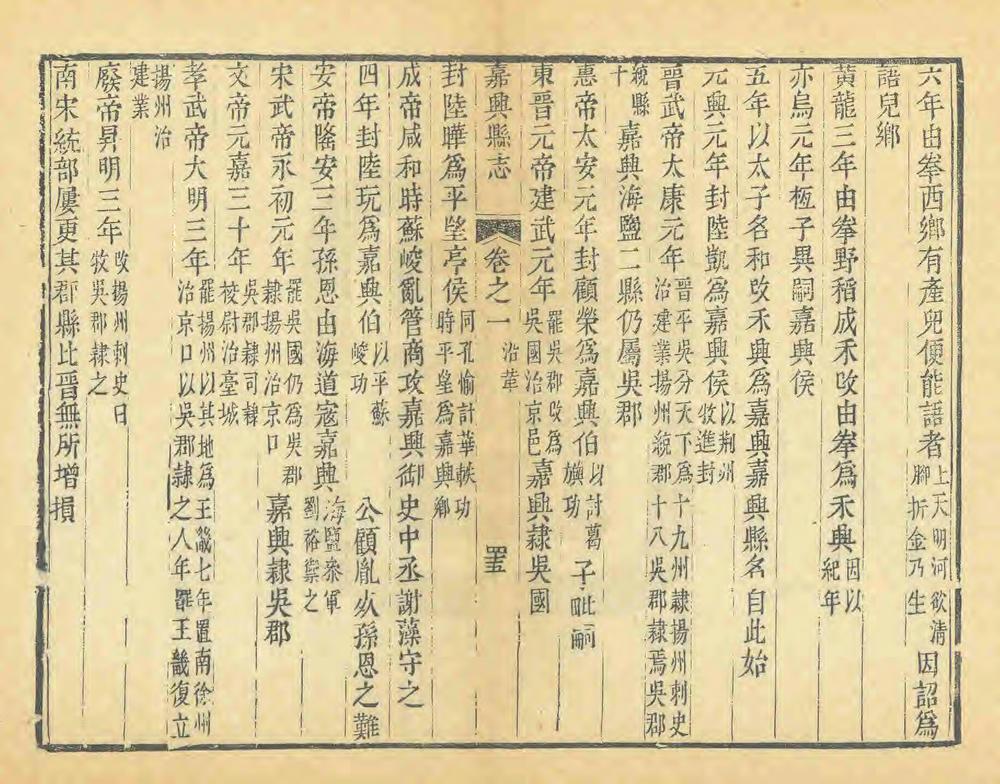 六年由拳西鄉有產兒便能語者上天明河欲清腳折金乃生因詔為
語兒鄉
黃龍三年由拳野稻成禾改由拳為禾興因以紀年
赤烏元年恆子異嗣嘉興侯
五年以太子名和改禾興為嘉興嘉興縣名自此始
元興元年封陸凱為嘉興侯以荆州牧進封
晉武帝太康元年晉平吳分天下為十九州隸揚州刺史治建業揚州統郡十八吳郡隸焉吳郡
統縣十嘉興海鹽二縣仍屬吳郡
惠帝太安元年封顧榮為嘉興伯以討葛旟功子毗嗣
東晉元帝建武元年罷吳郡改為吳國治京邑嘉興隸吳國
嘉興縣志 卷之一 沿革 四五
封陸曄為平望亭侯同孔愉計華軼功時平望為嘉興鄉
成帝咸和時蘇峻亂管商攻嘉興御史中丞謝藻守之
四年封陸玩為嘉興伯以平蘇峻功公顧胤死孫恩之難
安帝隆安三年孫恩由海道寇嘉興海鹽叅軍劉裕禦之
宋武帝永初元年罷吳國仍為吳郡隸揚州治京口嘉興隸吳郡
文帝元嘉三十年吳郡隸司隸校尉治臺城
孝武帝大明三年罷揚州以其地為王畿七年置南徐州治京口以吳郡隸之八年罷王畿復立
揚州治建業
廢帝昇明三年改揚州刺史曰牧吳郡隸之
南宋統部屢更其郡縣比晉無所增損